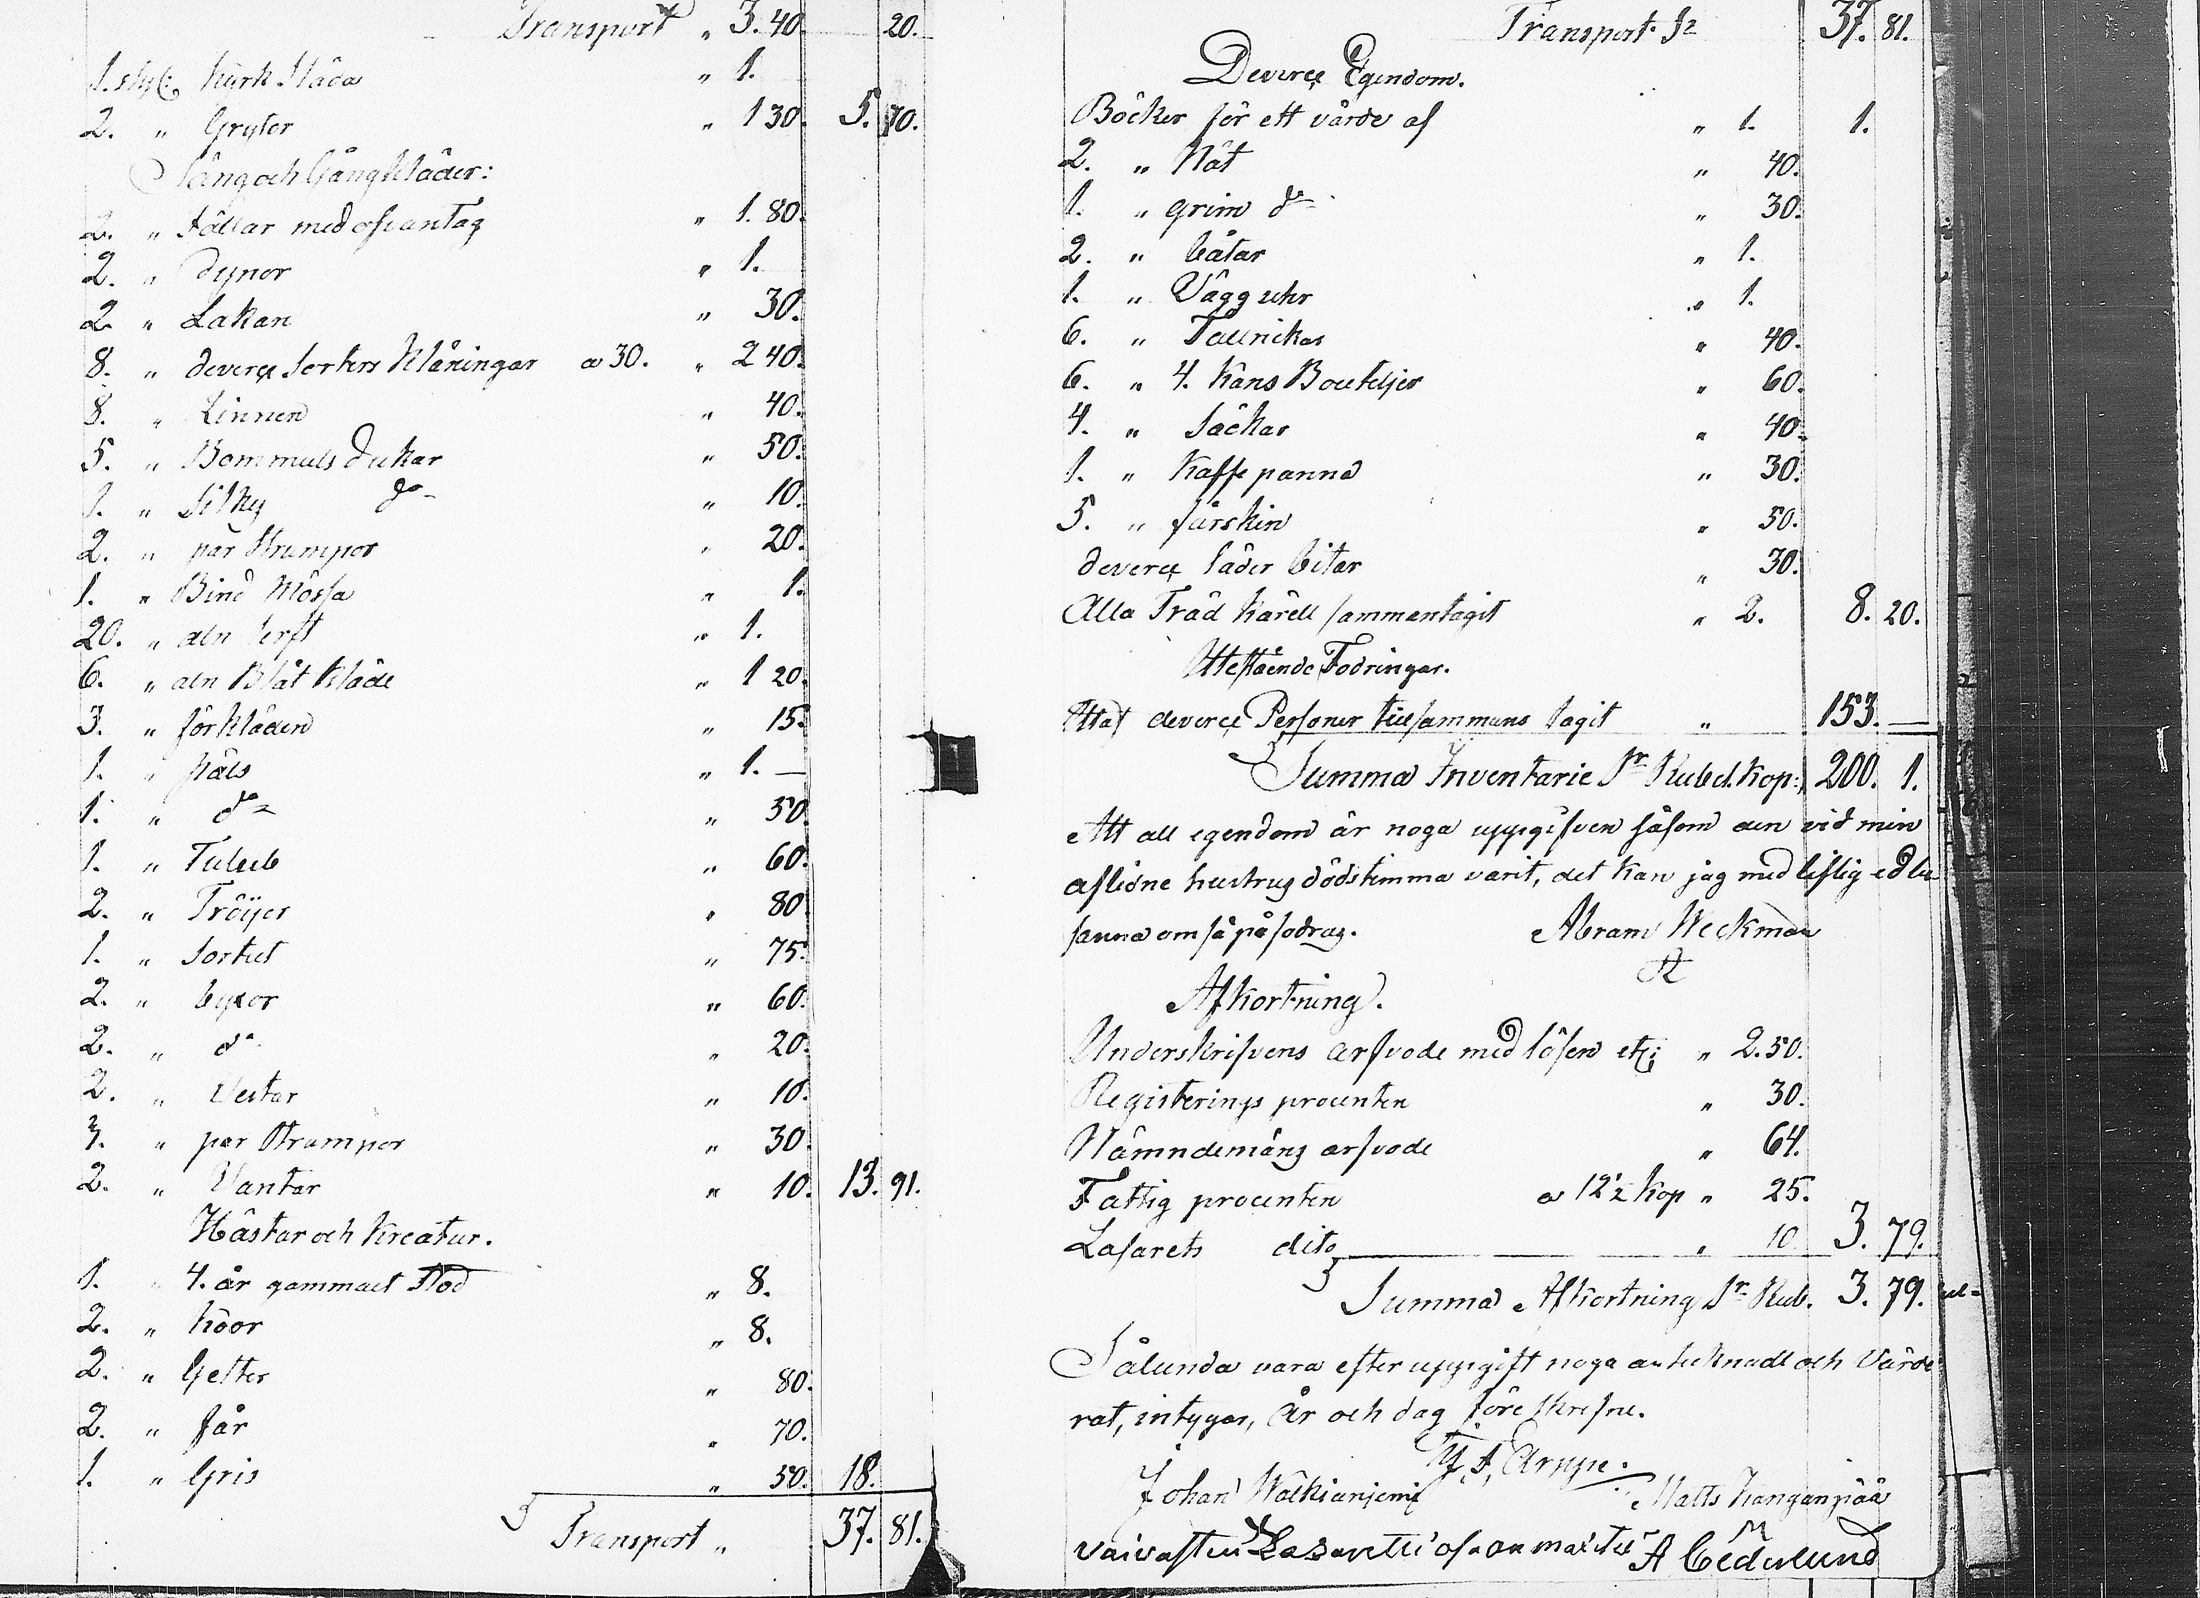 Transport " 3. 40. 20.
1. styc: Kyrk Släda " 1.
2. " Grytor " 1 30. 5. 70.
Säng och Gångkläder:
2. " Fällar med ofvantag " 1. 80.
2. " dynor " 1.
2. " Lakan " 30.
8. " deverse sorters Klåningar a 30. " 2 40.
8. " Linnen " 40.
5. " Bommuls dukar " 50.
1. " Silkes do " 10.
2. " par Strumpor " 20.
1. " Bind Mössa " 1.
20. " aln lerft " 1.
6. " aln Blåt Kläde " 1 20.
3. " förkläden " 15.
1. " Päls " 1. —
1. " do " 50.
1. " Tulub " 60.
2. " Tröijor " 80.
1. " Sortut " 75.
2. " byxor " 60.
2. " do " 20.
2. " Vestar " 10.
3. " par Strumpor " 30.
2. " Vantar " 10. 13. 91.
Hästar och Kreatur.
1. " 4. år gammalt Stod " 8.
2. " Koor " 8.
2. " Getter " 80.
2. " får " 70.
1. " Gris " 50. 18.
Transport " 37. 81.
Transport Sr 37. 81.
Deverse Egendom.
Böcker för ett värde af " 1. 1.
2. " Nät " 40.
1. " grim do " 30.
2. " båtar " 1.
1. " Vägguhr " 1.
6. " Tallrikar " 40.
6. " 4. kans Bouteljer " 60.
4. " Säckar " 40.
1. " Kaffe panna " 30.
5. " fårskin " 50.
deverse läder bitar " 30.
Alla Träd Kärell sammantagit " 2. 8. 20.
Utestående Fodringar.
Utaf deverse Personer tillsammans tagit " 153. —
Summa Inventarie Sr Rub. d. Kop: 200. 1.
Att all egendom är noga uppgifven såsom den vid min
aflidne hustrus dödstimma varit, det kan jag med liflig ed be
sanna om så påfodras. Abram Weckman
Afkortning.
Underskrifvens arfvode med lösen etc: " 2. 50.
Registerings procenten " 30.
Nämndemäns arfvode " 64.
Fattig procenten a 12½ Kop " 25.
Lasarets dito " 10. 3. 79.
Summa Afkortning Sr Rub. 3. 79.
Sålunda vara efter uppgift noga antecknadt och värde
rat, intygar, år och dag föreskrefne.
Arppe.
Johan Matts Kanganpää
A Cederlund